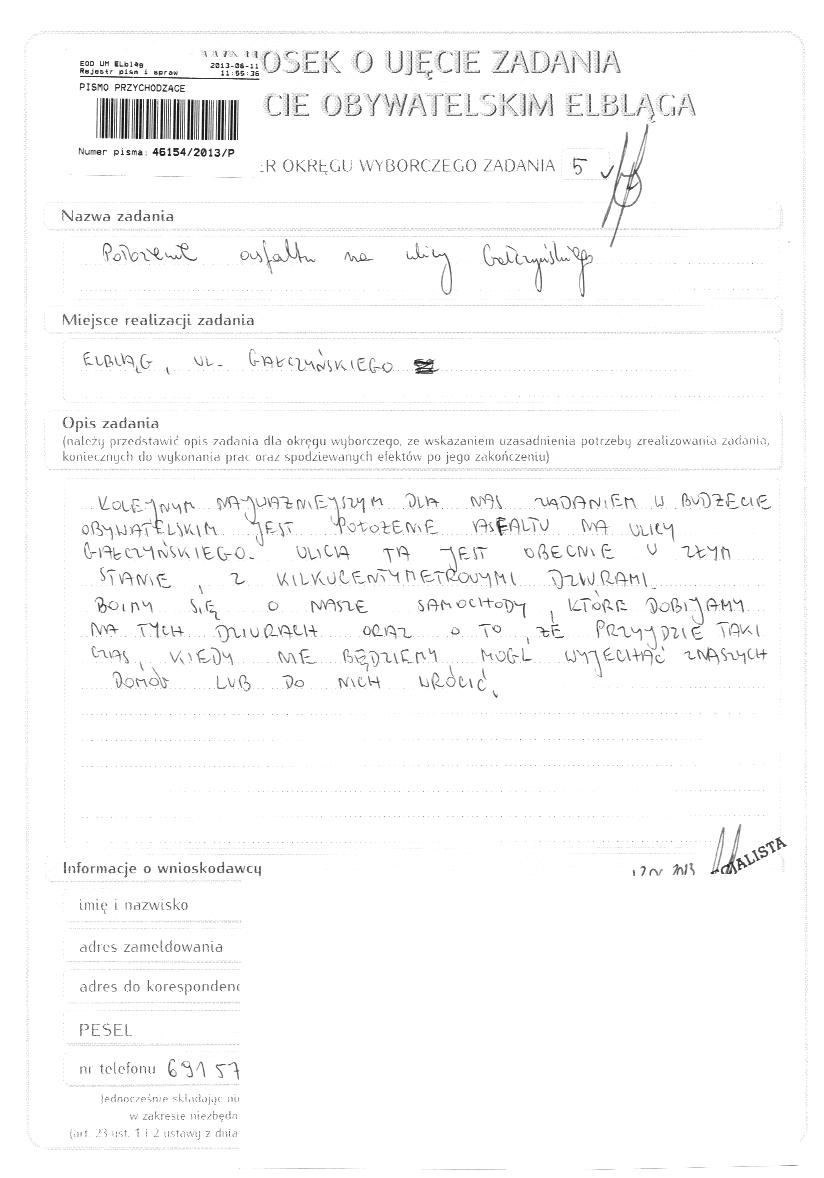 EOD UM Elbląg 2013-06-11
Rejestr pism i spraw 11:55:36
PISMO PRZYCHODZĄCE
Numer pisma: 46154/2013/P
OSEK O UJĘCIE ZADANIA
CIE OBYWATELSKIM ELBLĄGA
ER OKRĘGU WYBORCZEGO ZADANIA 5
Nazwa zadania
Położenie asfaltu na ulicy Gałczyńskiego
Miejsce realizacji zadania
ELBLĄG, UL. GAŁCZYŃSKIEGO
Opis zadania
(należy przedstawić opis zadania dla okręgu wyborczego, ze wskazaniem uzasadnienia potrzeby zrealizowania zadania,
koniecznych do wykonania prac oraz spodziewanych efektów po jego zakończeniu)
KOLEJNYM NAJWAŻNIEJSZYM DLA NAS ZADANIEM W BUDŻECIE
OBYWATELSKIM JEST POŁOŻENIE ASFALTU NA ULICY
GAŁCZYŃSKIEGO. ULICA TA JEST OBECNIE W ZŁYM
STANIE, Z KILKUCENTYMETROWYMI DZIURAMI.
BOIMY SIĘ O NASZE SAMOCHODY, KTÓRE DOBIJAMY
NA TYCH DZIURACH ORAZ O TO, ŻE PRZYJDZIE TAKI
CZAS, KIEDY NIE BĘDZIEMY MOGLI WYJECHAĆ Z NASZYCH
DOMÓW LUB DO NICH WRÓCIĆ.
2013 ALISTA
Informacje o wnioskodawcy
imię i nazwisko
adres zameldowania
adres do korespondenc
PESEL
nr telefonu 691 57
Jednocześnie składając nu
w zakresie niezbędn
(art. 23 ust. 1 i 2 ustawy z dnia